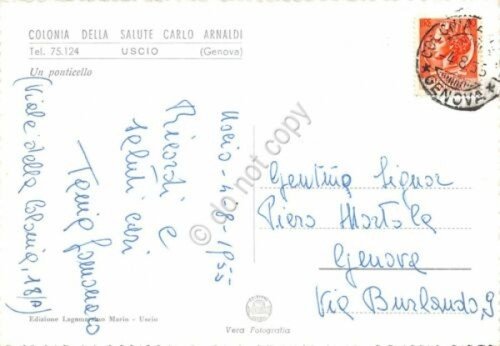 COLONIA DELLA SALUTE CARLO ARNALDI
Tel. 75.124 USCIO (Genova)
Un ponticello
Uscio - 4-8-1955
Ricordi e
saluti cari
(Viale della Colonia, 18/A)
Gentmo Signor
Piero Mortola
Genova
Via Burlando, 9
GENOVA
Edizione Lagomarsino Mario - Uscio
Vera Fotografia
do not copy